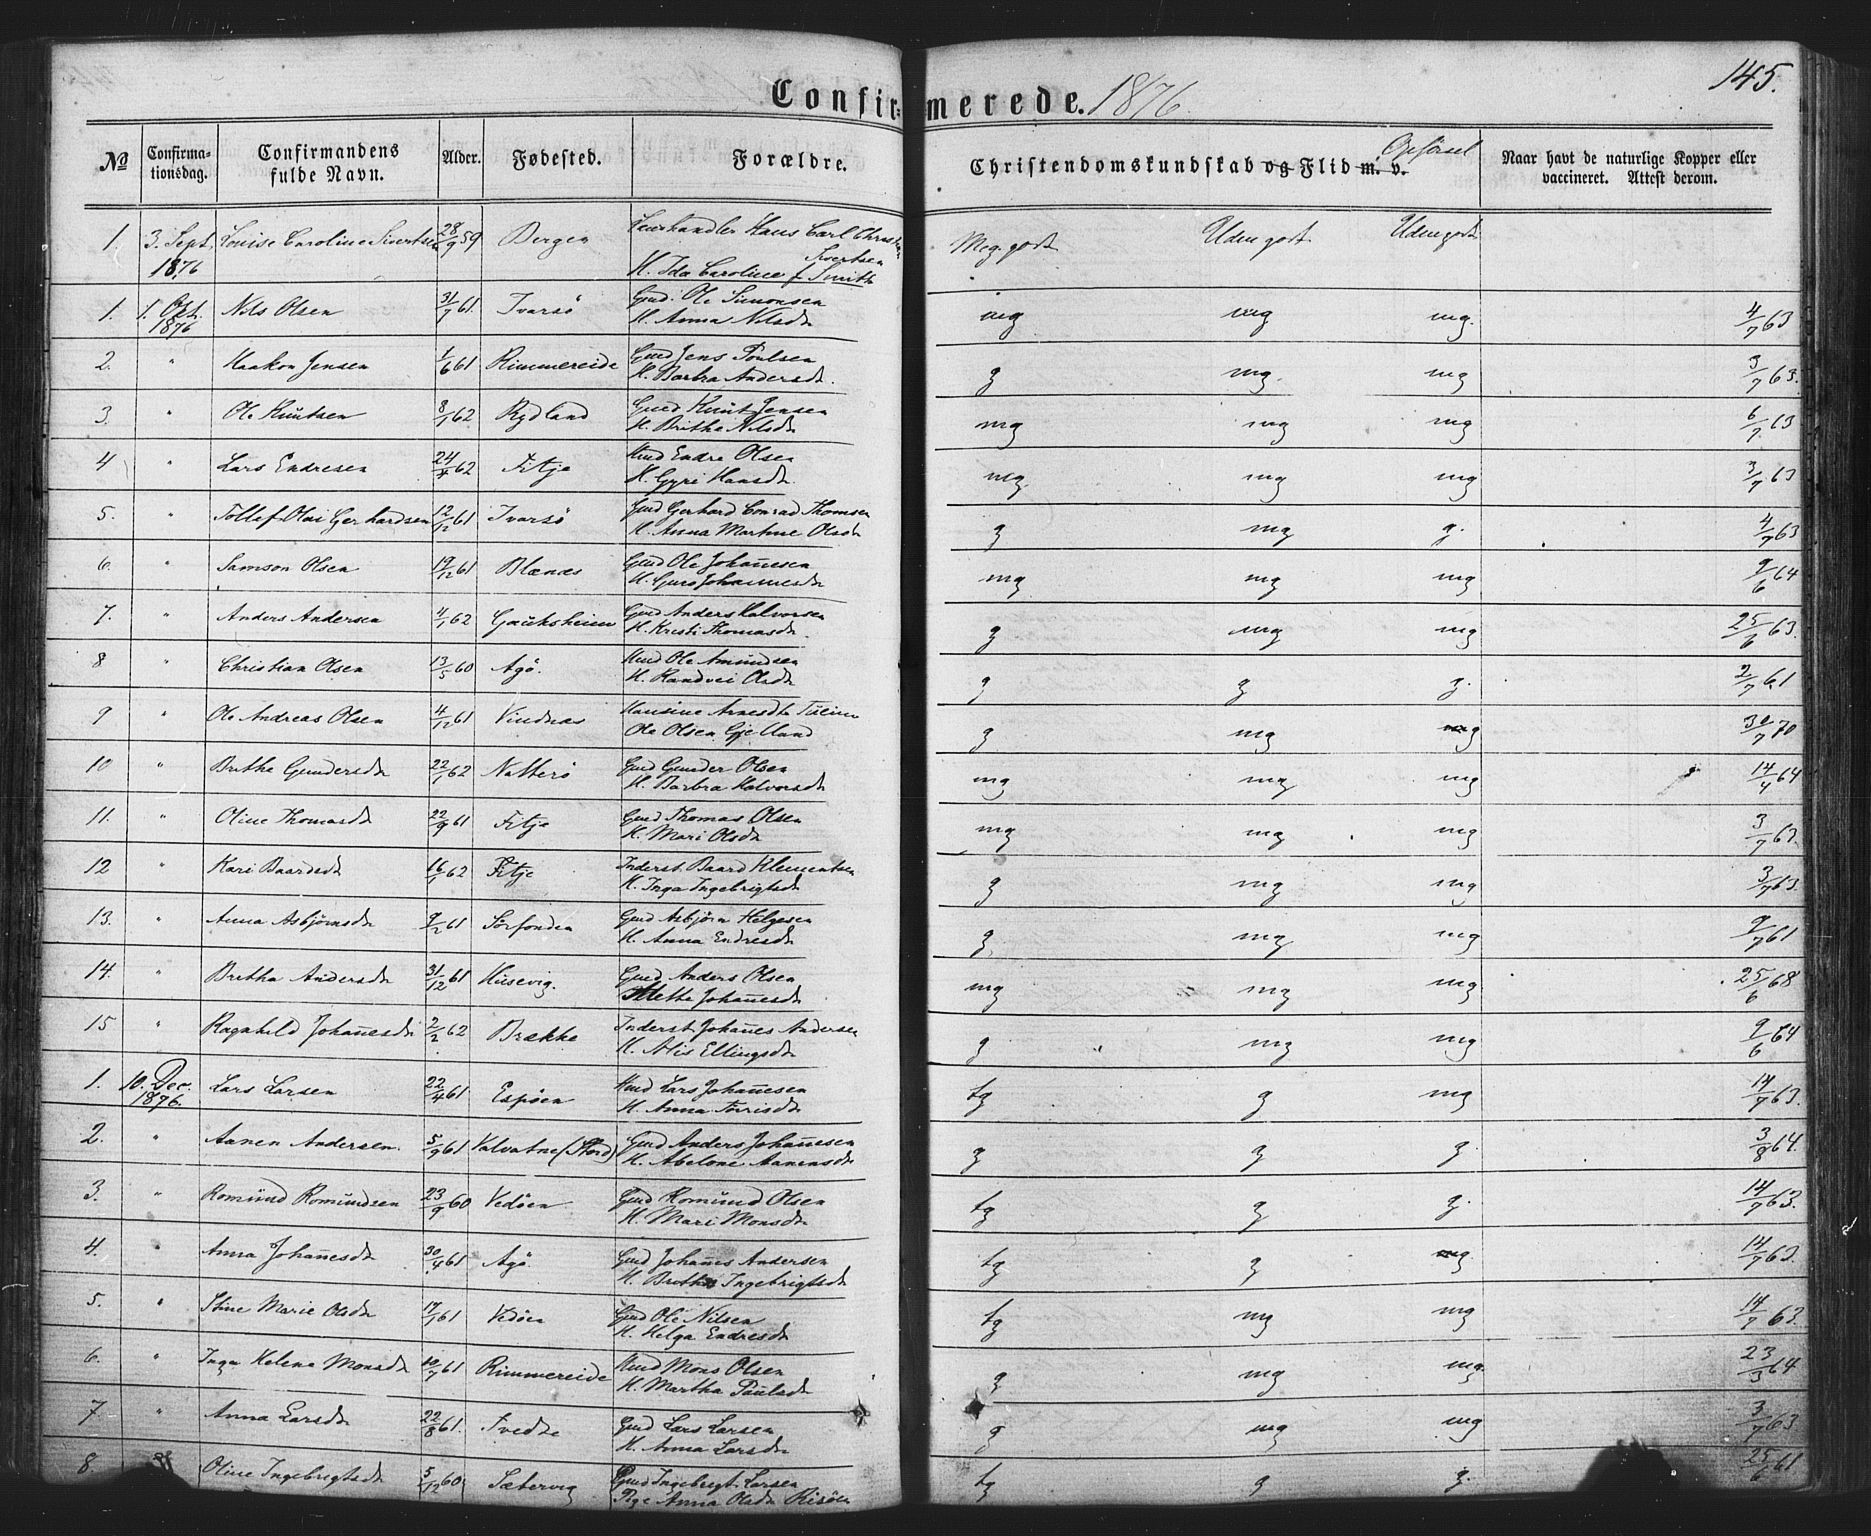 145.
Confirmerede. 1876.
No Confirmationsdag. Confirmandens fulde Navn. Alder. Fødested. Forældre. Christendomskundskab og Flid m. v. Opførsel Naar havt de naturlige Kopper eller vaccineret. Attest derom.
1. 3. Sept. Louise Caroline Sivertsen 28/9 59 Bergen Hans Carl Christian Meg. godt Udm. godt Udm. godt
1876 Sivertsen
H. Ida Caroline f Smith
1. 1. Okt. Nils Olsen 31/7 61 Ivarsö Gmd. Ole Simonsen mg mg mg. 4/7 63
1876 H. Anna Nilsdr
2. " Haakon Jensen 1/6 61 Rimmereide Gmd Jens Poulsen g mg. mg 3/7 63.
H. Barbra Andersdr.
3. " Ole Knutsen 8/1 62 Rydland Gmd Knut Jensen mg mg mg 6/7 63
H. Brithe Nilsdr
4 " Lars Endresen 24/4 62 Fitje Hmd Endre Olsen mg. mg mg 3/7 63
H. Gyri Hansdr.
5. " Tollef Olai Gerhardsen 12/12 61 Ivarsö Gmd Gerhard Conrad Thomsen g mg g. 4/7 63
H. Anna Martine Olsdr
6. " Samson Olsen 19/12 61 Blænes Gmd Ole Johannesen mg mg mg 9/6 64
H. Guro Johannesdr
7. " Anders Andersen 4/1 62 Gauksheim Gmd Anders Halvorsen g mg mg 25/6 63.
H. Kristi Thomasdr.
8 " Christian Olsen 13/5 60 Agö. Hmd Ole Amundsen g g g. 2/7 61
H. Randvei Olsdr
9 " Ole Andreas Olsen 4/12 61 Vindnes Hansine Arnesdtr g mg mg 30/7 70
Ole Olsen Gjelland
10 " Brithe Gundersdr 22/1 62 Natterö Gmd Gunder Olsen mg mg mg 14/7 64
H. Barbra Halvorsdr
11. " Oline Thomasdr 22/9 61 Fitje Gmd Thomas Olsen mg mg mg 3/7 63.
H. Mari Olsdr
12 " Kari Baardsdr 16/1 62 Fitje Inderst Baard Klementsen g mg mg 3/7 63.
H. Inga Ingebrigtsdr
13. " Anna Asbjörnsdr 9/2 61 Sörfonden Gmd Asbjörn Helgesen g mg mg 9/7 61
H. Anna Endresdr
14. " Britha Andersdr 31/12 61 Husevig. Gmd Anders Olsen mg mg mg 25/6 68
Mette Johanesdr
15 " Ragnhild Johanesdr 2/2 62 Brække Inderst Johanes Andersen g mg mg 9/6 64
H. Alis Ellingsdr
1. 10. Dec. Lars Larsen 22/4 61 Espöen Hmd Lars Johanesen tg g mg 14/7 63.
1876. H. Anna
2. " Aanen Andersen. 5/9 61 Valvatne (Stord) Gmd Anders Johanesen g g g 3/8 64.
H. Abelone Aanensdr
3. " Romund Romundsen 23/9 60 Vedöen Gmd Romund Olsen tg g g. 14/7 63.
H. Mari Monsdr
4. " Anna Johanesdr 30/4 61 Agö. Gmd Johanes Andersen tg g mg 14/7 63.
H. Brithe Ingebrigtsdr
5. " Stine Marie Olsdr 17/1 61 Vedöen Gmd Ole Nilsen tg mg mg 14/7 63.
H. Helga Endresdr
6. " Inga Helena Monsdr 10/7 61 Rimmereide Hmd Mons Olsen g mg mg. 23/3 64
H. Martha Paulsdr
7 " Anna Larsdr 22/8 61. Tvedte Gmd Lars Larsen g mg mg 3/7 63
H. Anna Larsdr
8. Oline Ingebrigtsdr 5/12 60 Sætervig Gmd Ingebrigt Larsen tg g g. 25/6 61
Pige Anna Olsdr Risöen